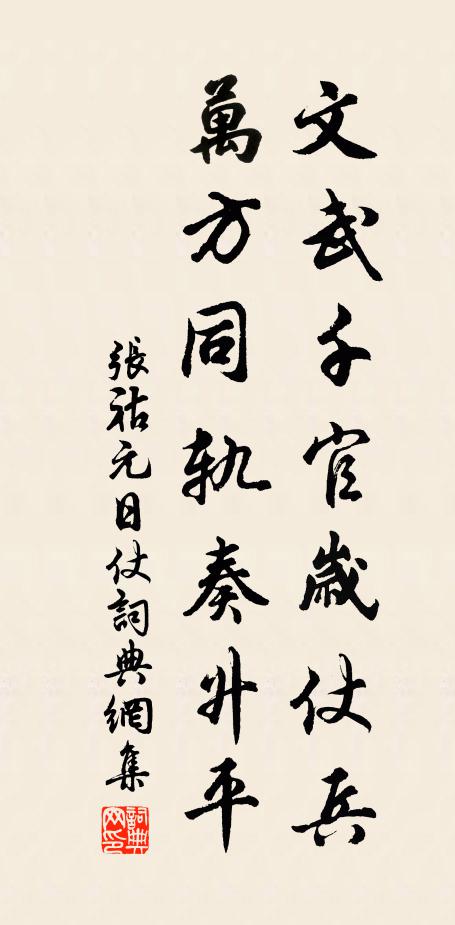 文武千官歲仗兵
萬方同軌奏升平
張祜元日仗詞典網集
詞典網印